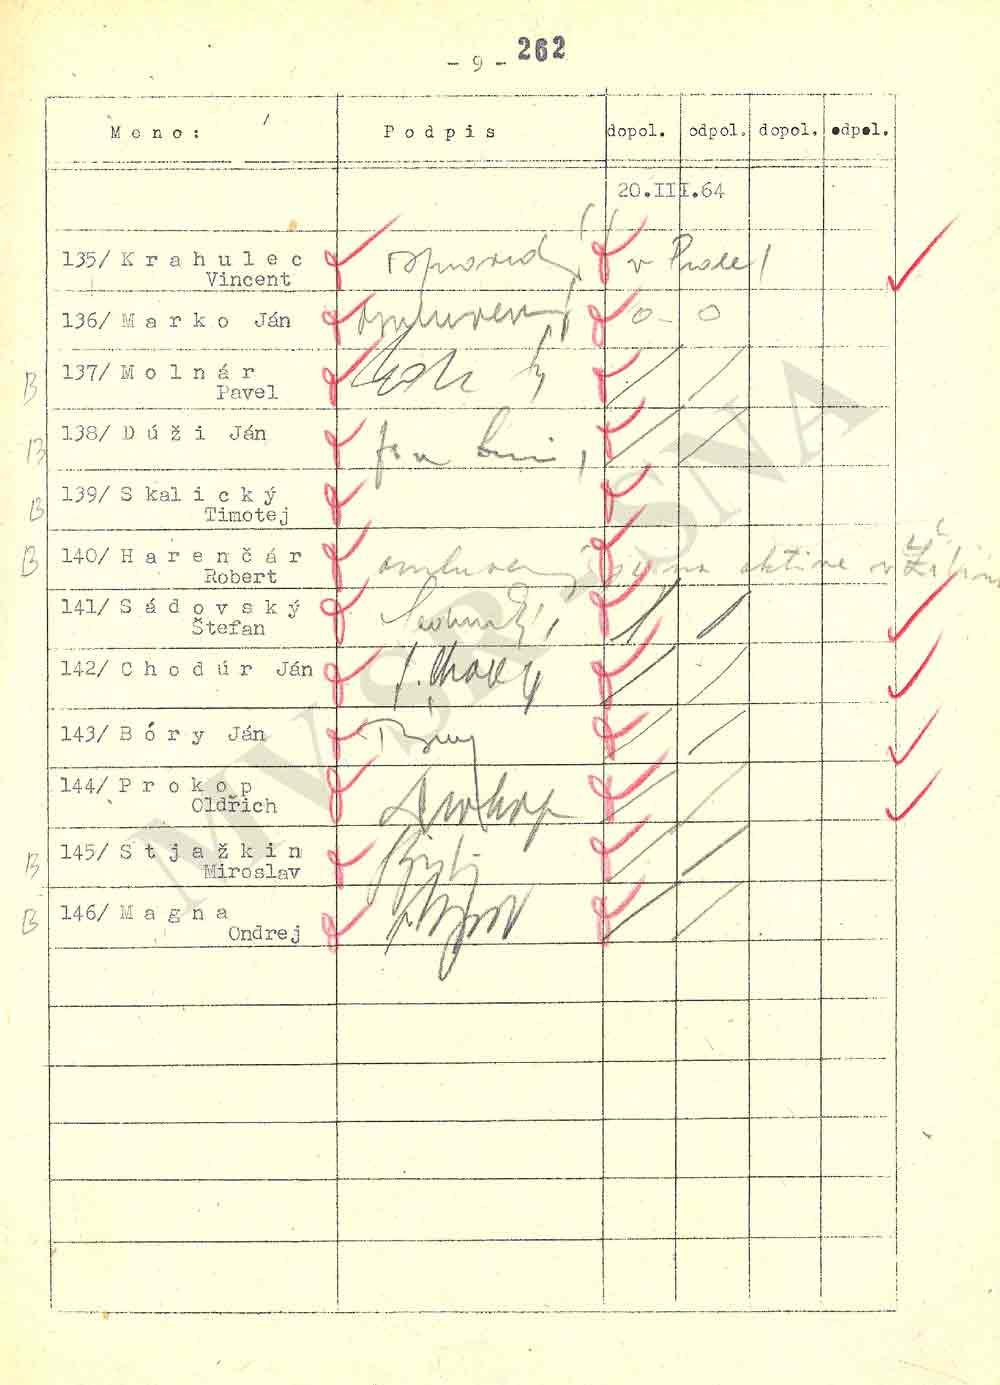 - 9 - 262
Meno: Podpis dopol. odpol. dopol. odpol.
20.III.64
135/ Krahulec
Vincent
v Praze!
136/ Marko Ján
0 - 0
B 137/ Molnár
Pavel
B 138/ Dúži Ján
B 139/ Skalický
Timotej
B 140/ Harenčár
Robert
na aktive v
141/ Sádovský
Štefan
142/ Chodúr Ján
143/ Bóry Ján
144/ Prokop
Oldřich
Prokop
B 145/ Stjažkin
Miroslav
B 146/ Magna
Ondrej
MV SR SNA